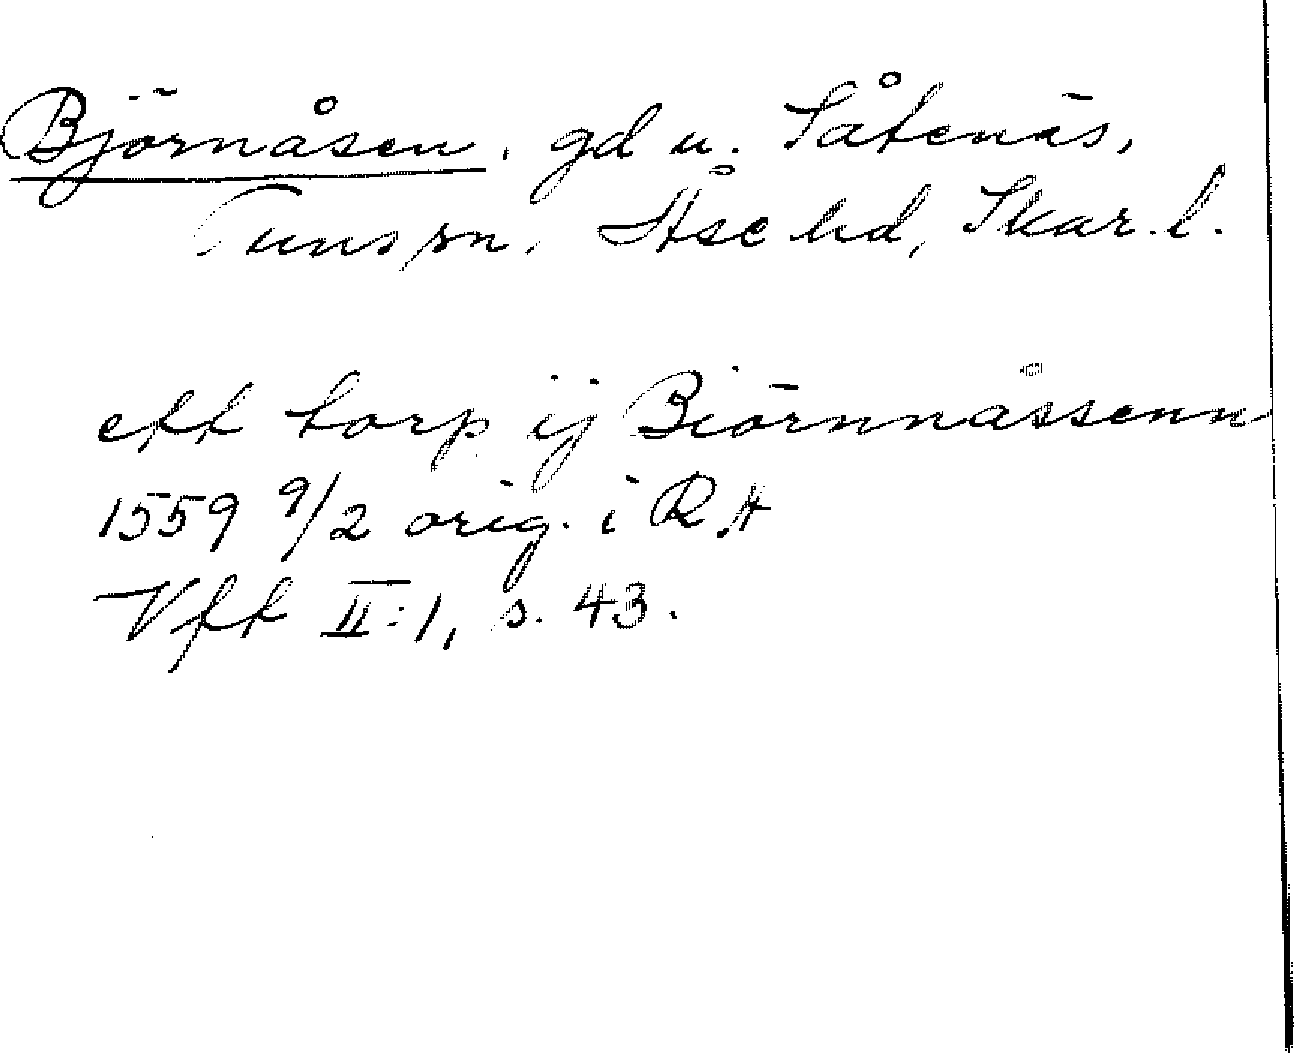 Björnåsen. gd u. Såtenäs,
Tuns sn. Åse hd, Skar. l.
ett torp ij Biörnnåssenn
1559 9/2 orig. i RA
Vftt II:1, s. 43.